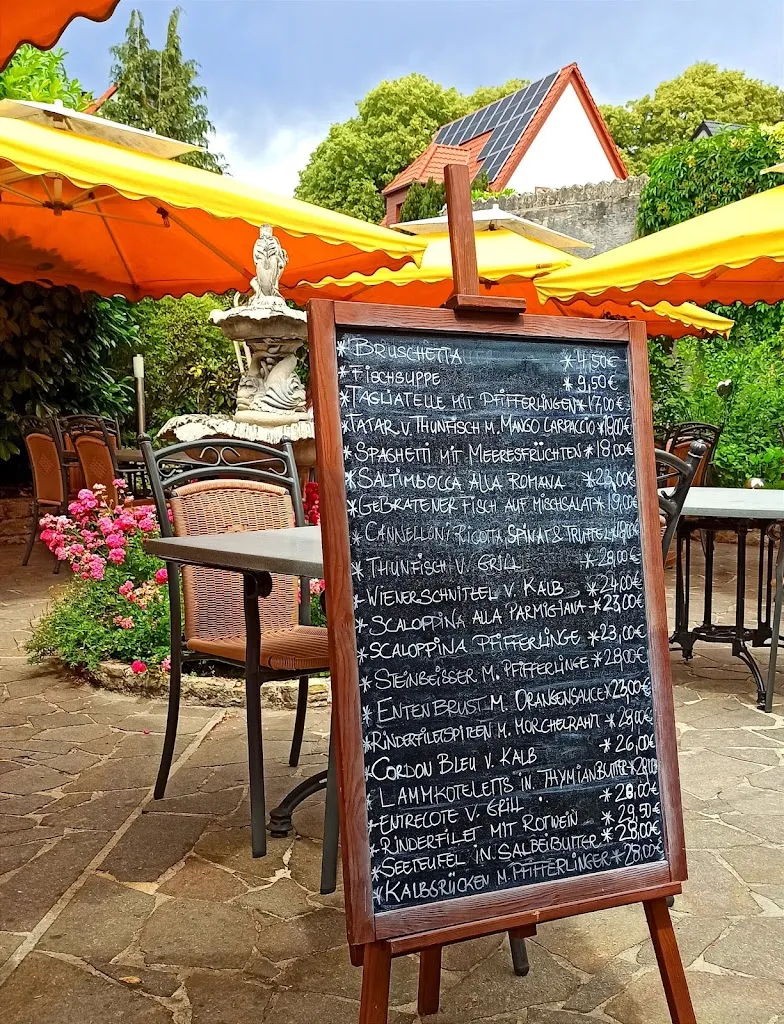 * BRUSCHETTA * 4,50€
* FISCHSUPPE * 9,50€
* TAGLIATELLE MIT PFIFFERLINGEN * 17,00€
* TATAR V. THUNFISCH M. MANGO CARPACCIO * 18,00€
* SPAGHETTI MIT MEERESFRÜCHTEN * 18,00€
* SALTIMBOCCA ALLA ROMANA * 23,00€
* GEBRATENER FISCH AUF MISCHSALAT * 19,00€
* CANNELLONI RICOTTA SPINAT & TRÜFFEL
* THUNFISCH V. GRILL * 28,00€
* WIENERSCHNITZEL V. KALB * 24,00€
* SCALOPPINA ALLA PARMIGIANA * 23,00€
* SCALOPPINA PFIFFERLINGE * 23,00€
* STEINBEISSER M. PFIFFERLINGE * 28,00€
* ENTENBRUST M. ORANGENSAUCE * 23,00€
* RINDERFILETSPITZEN M. MORCHELRAHM * 28,00€
* CORDON BLEU V. KALB * 26,00€
* LAMMKOTELETTS IN THYMIANBUTTER
* ENTRECOTE V. GRILL * 28,00€
* RINDERFILET MIT ROTWEIN * 29,50€
* SEETEUFEL IN SALBEIBUTTER * 28,00€
* KALBSRÜCKEN M. PFIFFERLINGEN * 28,00€